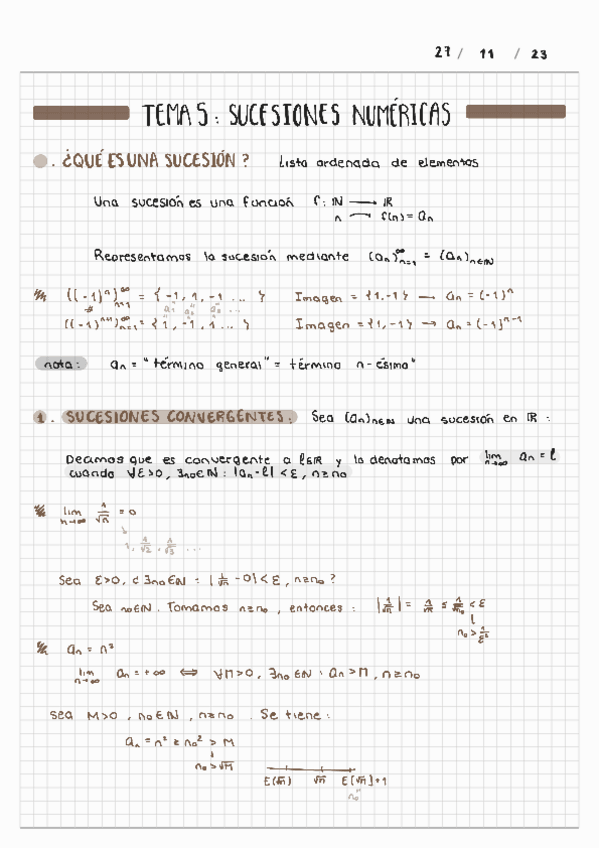 27 / 11 / 23
TEMA 5: SUCESIONES NUMÉRICAS
. ¿QUÉ ES UNA SUCESIÓN? Lista ordenada de elementos
Una sucesión es una función f: ℕ → ℝ
n → f(n) = aₙ
Representamos la sucesión mediante (aₙ)^∞ₙ₌₁ = (aₙ)ₙ∈ℕ
((-1)ⁿ)^∞ₙ₌₁ = { -1, 1, -1 ... } Imagen = {1, -1} → aₙ = (-1)ⁿ
a₁ a₂ a₃ ...
((-1)ⁿ⁺¹)^∞ₙ₌₁ = { 1, -1, 1 ... } Imagen = {1, -1} → aₙ = (-1)ⁿ⁻¹
nota: aₙ = "término general" = término n-ésimo"
1. SUCESIONES CONVERGENTES: Sea (aₙ)ₙ∈ℕ una sucesión en ℝ:
Decimos que es convergente a l∈ℝ y lo denotamos por lim n→∞ aₙ = l
cuando ∀ε>0, ∃n₀∈ℕ : |aₙ - l| < ε, n≥n₀
lim n→∞ 1/√n = 0
1, 1/√2, 1/√3 ...
Sea ε>0, ¿∃n₀∈ℕ : |1/√n - 0| < ε, n≥n₀?
Sea n₀∈ℕ. Tomamos n≥n₀, entonces: |1/√n| = 1/√n ≤ 1/√n₀ < ε
n₀ > 1/ε²
aₙ = n²
lim n→∞ aₙ = +∞ ⇔ ∀M>0, ∃n₀∈ℕ : aₙ > M, n≥n₀
Sea M>0, n₀∈ℕ, n≥n₀. Se tiene:
aₙ = n² ≥ n₀² > M
n₀ > √M
E(√M) √M E[√M]+1
n₀